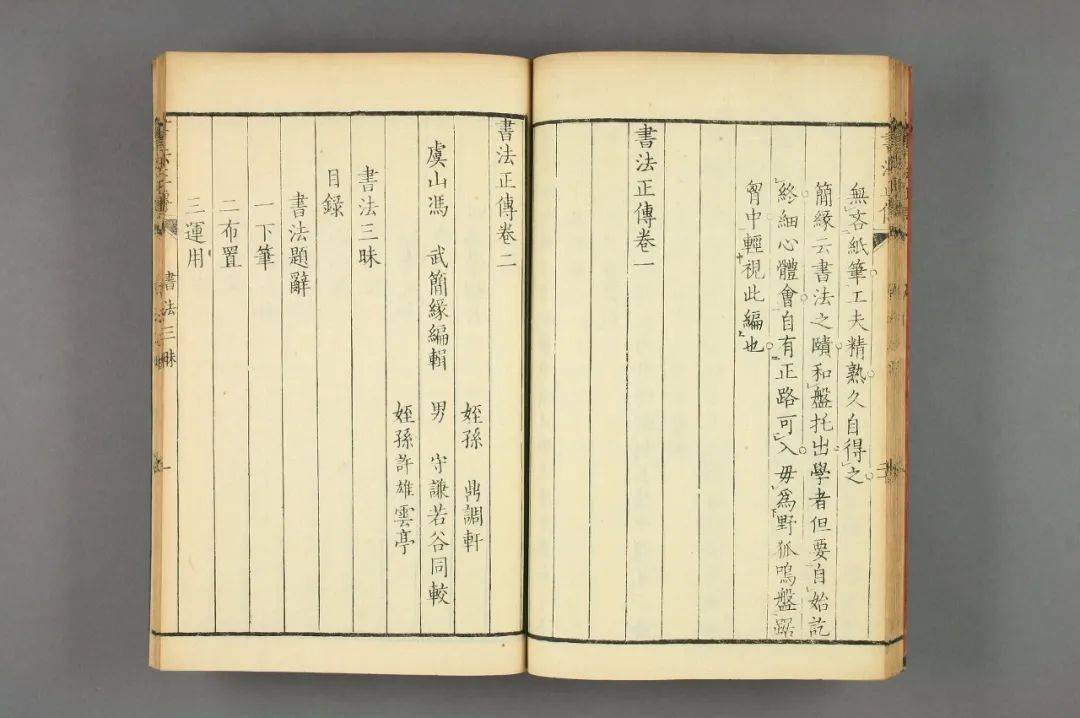 無吝紙筆工夫精熟久自得之
簡緣云書法之賾和盤托出學者但要自始訖
終細心體會自有正路可入毋爲野狐鳴盤踞
胷中輕視此編也
書法正傳卷一
書法正傳卷二
姪孫 鼎調軒
虞山馮 武簡緣編輯 男 守謙若谷同較
姪孫許雄雲亭
書法三昧
目錄
書法題辭
一下筆
二布置
三運用
書法三昧